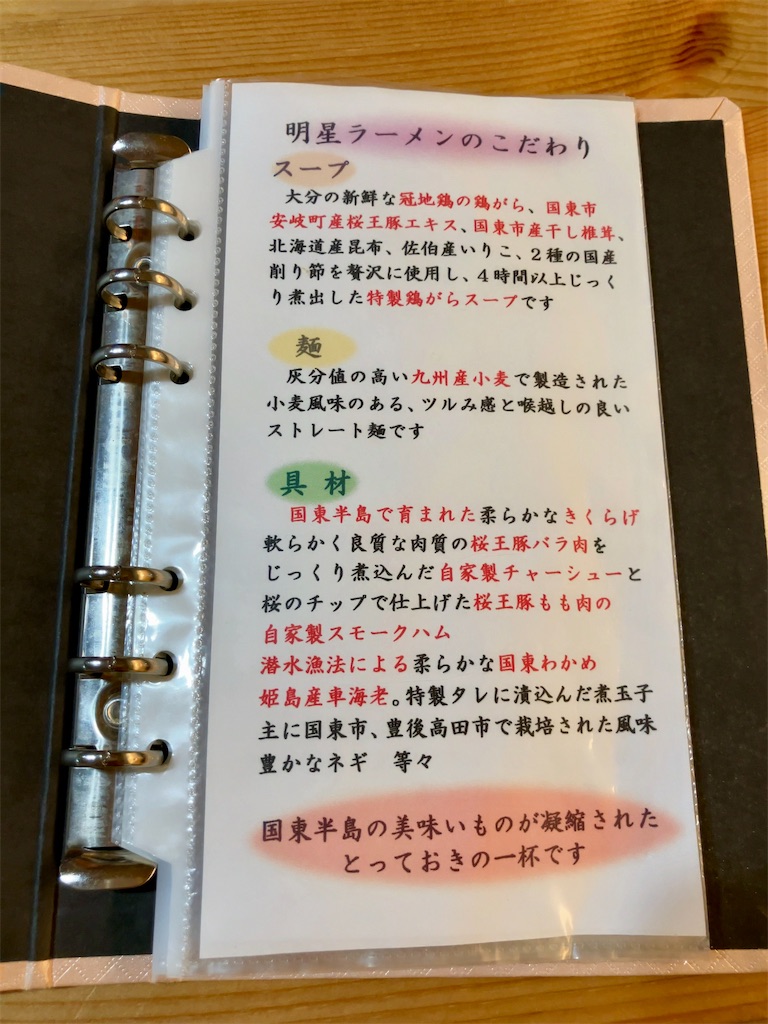 明星ラーメンのこだわり
スープ
大分の新鮮な冠地鶏の鶏がら、国東市
安岐町産桜王豚エキス、国東市産干し椎茸、
北海道産昆布、佐伯産いりこ、2種の国産
削り節を贅沢に使用し、4時間以上じっく
り煮出した特製鶏がらスープです
麺
灰分値の高い九州産小麦で製造された
小麦風味のある、ツルみ感と喉越しの良い
ストレート麺です
具材
国東半島で育まれた柔らかなきくらげ
軟らかく良質な肉質の桜王豚バラ肉を
じっくり煮込んだ自家製チャーシューと
桜のチップで仕上げた桜王豚もも肉の
自家製スモークハム
潜水漁法による柔らかな国東わかめ
姫島産車海老。特製タレに漬込んだ煮玉子
主に国東市、豊後高田市で栽培された風味
豊かなネギ　等々
国東半島の美味いものが凝縮された
とっておきの一杯です